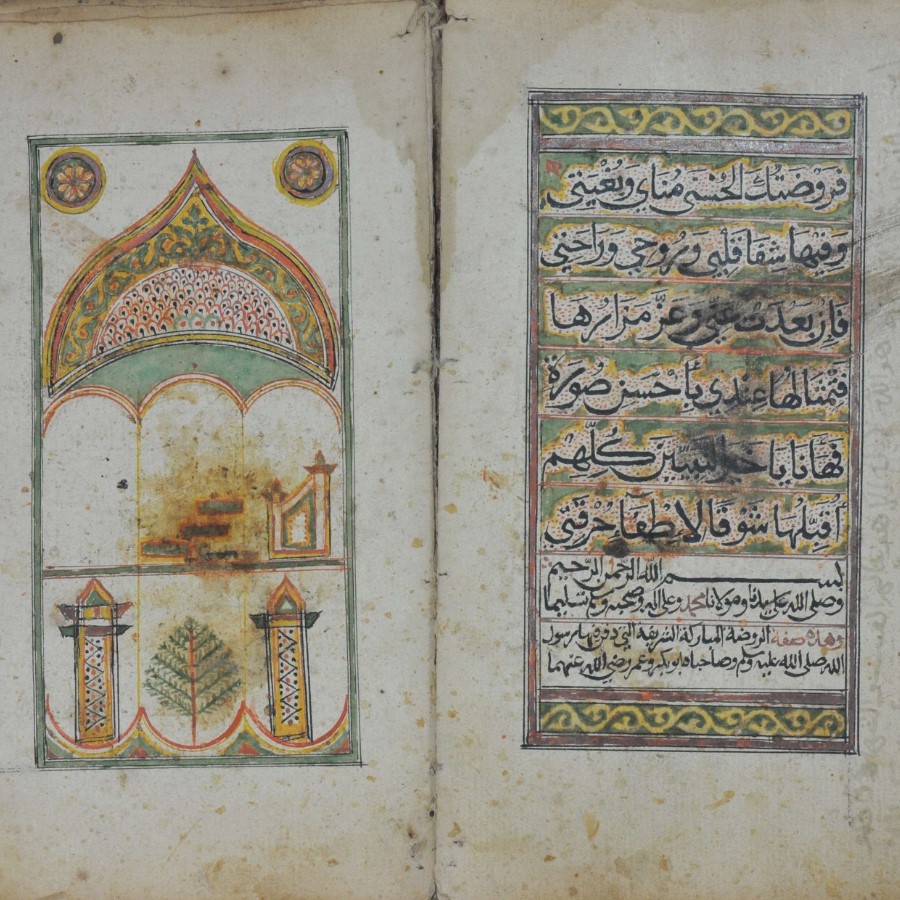 فَرَوْضَتُكَ الْحُسْنَى مُنَاي وَبُغْيَتِي
وَفِيهَا شِفَا قَلْبِي وَرُوحِي وَرَاحَتِي
فَإِن بَعُدَتْ عَنِّي وَعَزَّ مَزَارُهَا
فَتِمْثَالُهَا عِنْدِي بِأَحْسَنِ صُورَةٍ
فَهَانَا يَا خَيْرَ النَّبِيِّينَ كُلِّهِمْ
أُقَبِّلُهَا شَوْقًا لِاطْفَاءِ حُرْقَتِي
بسم الله الرحمن الرحيم
وصلى الله على سيدنا ومولانا محمد وعلى اله وصحبه وسلم تسليما
وهذه صفة الروضة المباركة الشريفة التي دفن بها رسول
الله صلى الله عليه وسلم وصاحباه ابو بكر وعمر رضي الله عنهما